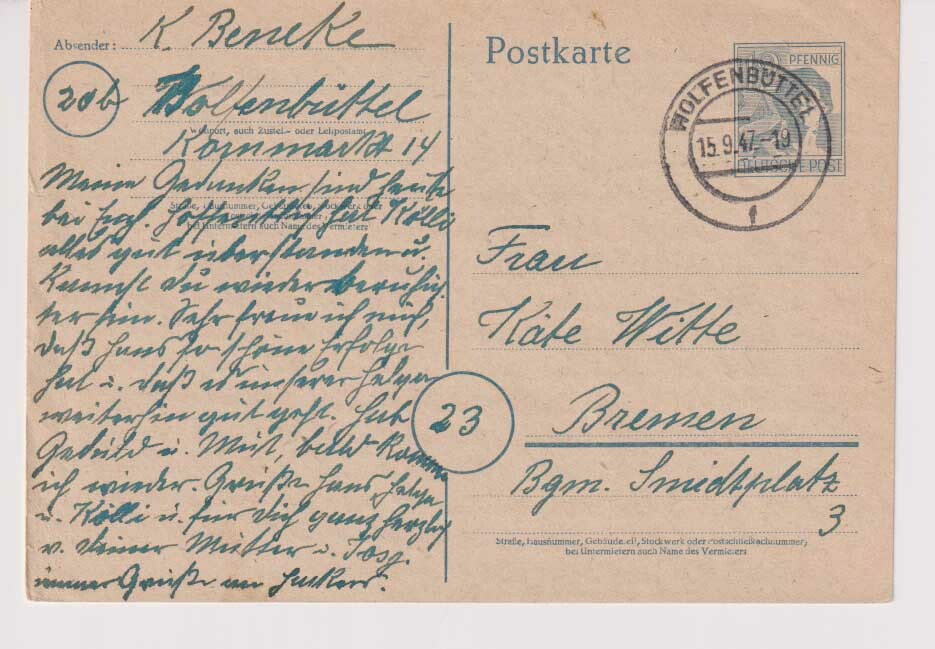 Absender: K. Beneke
20b Wolfenbüttel
Wohnort, auch Zustell- oder Leitpostamt
Kornmarkt 14
Straße, Hausnummer, Gebäudeteil, Stockwerk oder
bei Untermietern auch Name des Vermieters
Meine Gedanken sind heute
bei Euch. Hoffentlich hat Kölli
alles gut überstanden u.
kannst Du wieder beruhig-
ter sein. Sehr freue ich mich,
daß Hans so schöne Erfolge
hat u. daß es unserer Helga
weiterhin gut geht. Hab
Geduld u. Mut, bald komme
ich wieder. Grüße Hans, Helga
u. Kölli u. für Dich ganz herzlich
v. Deiner Mutter u.
immer Grüße an
Postkarte
12 PFENNIG
DEUTSCHE POST
WOLFENBÜTTEL
15.9.47.-19
f
Frau
Käte Witte
23 Bremen
Bgm. Smidtplatz
3
Straße, Hausnummer, Gebäudeteil, Stockwerk oder Postschließfachnummer,
bei Untermietern auch Name des Vermieters